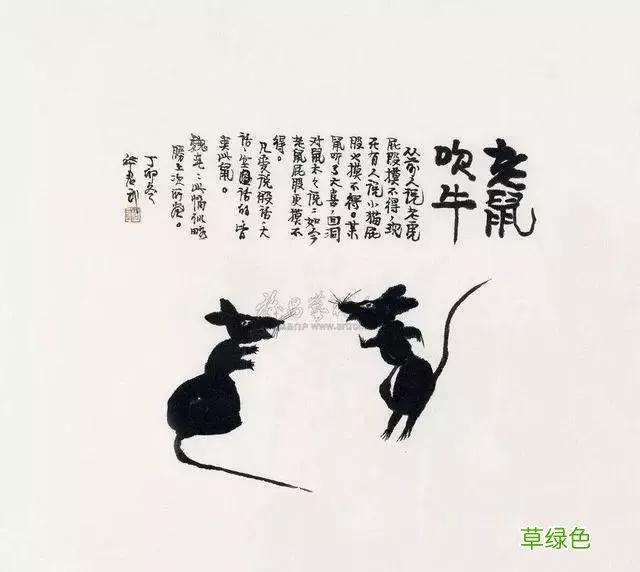 老鼠
吹牛
从前人说老虎
屁股摸不得，现
在有人说小猫屁
股也摸不得。某
鼠听了大喜，回洞
对鼠太太说：如今
老鼠屁股更摸不
得。
凡爱说假话、大
话、空话的、皆
类此鼠。
此幅似略
胜上次所
丁卯冬
www.artro
草绿色